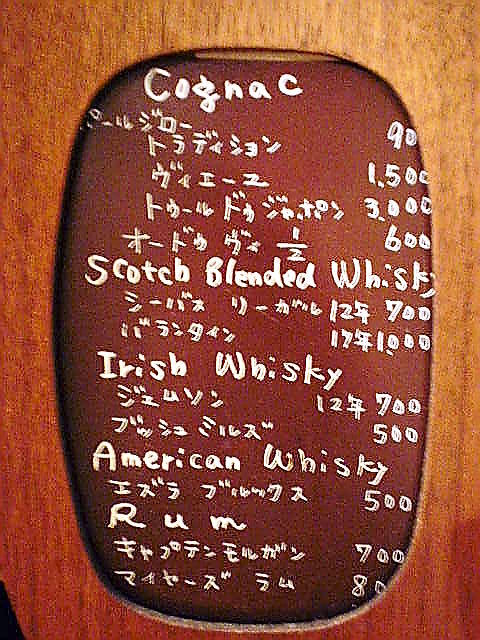 Cognac
ポールジロー
トラディション 90
ヴィエーユ 1,500
トゥール ドゥ ジャポン 3,000
オードゥ ヴィ 1/2 600
Scotch Blended Whisky
シーバス リーガル 12年 700
バランタイン 17年 1,000
Irish Whisky
ジェムソン 12年 700
ブッシュミルズ 500
American Whisky
エズラ ブルックス 500
Rum
キャプテンモルガン 700
マイヤーズ ラム 80